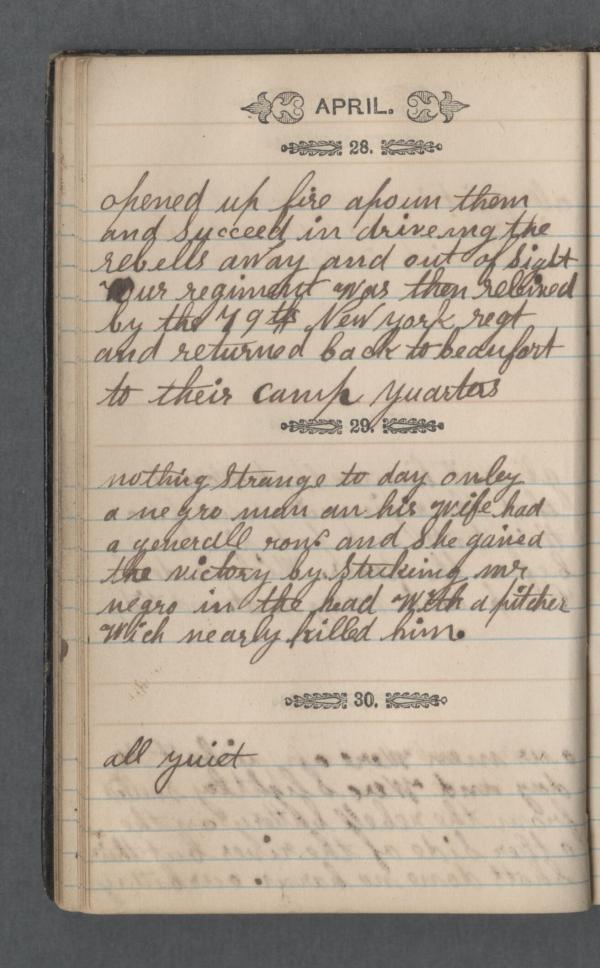 APRIL.
28.
opened up fire apoun them
and succeed in driveing the
rebells away and out of sight
our regiment was then releived
by the 79th New york regt
and returned back to beaufort
to their camp quarters
29.
nothing strange to day onley
a negro man an his wife had
a generall and she gained
the victory by strikeing mr
negro in the head with a pitcher
wich nearly killed him.
30.
all quiet